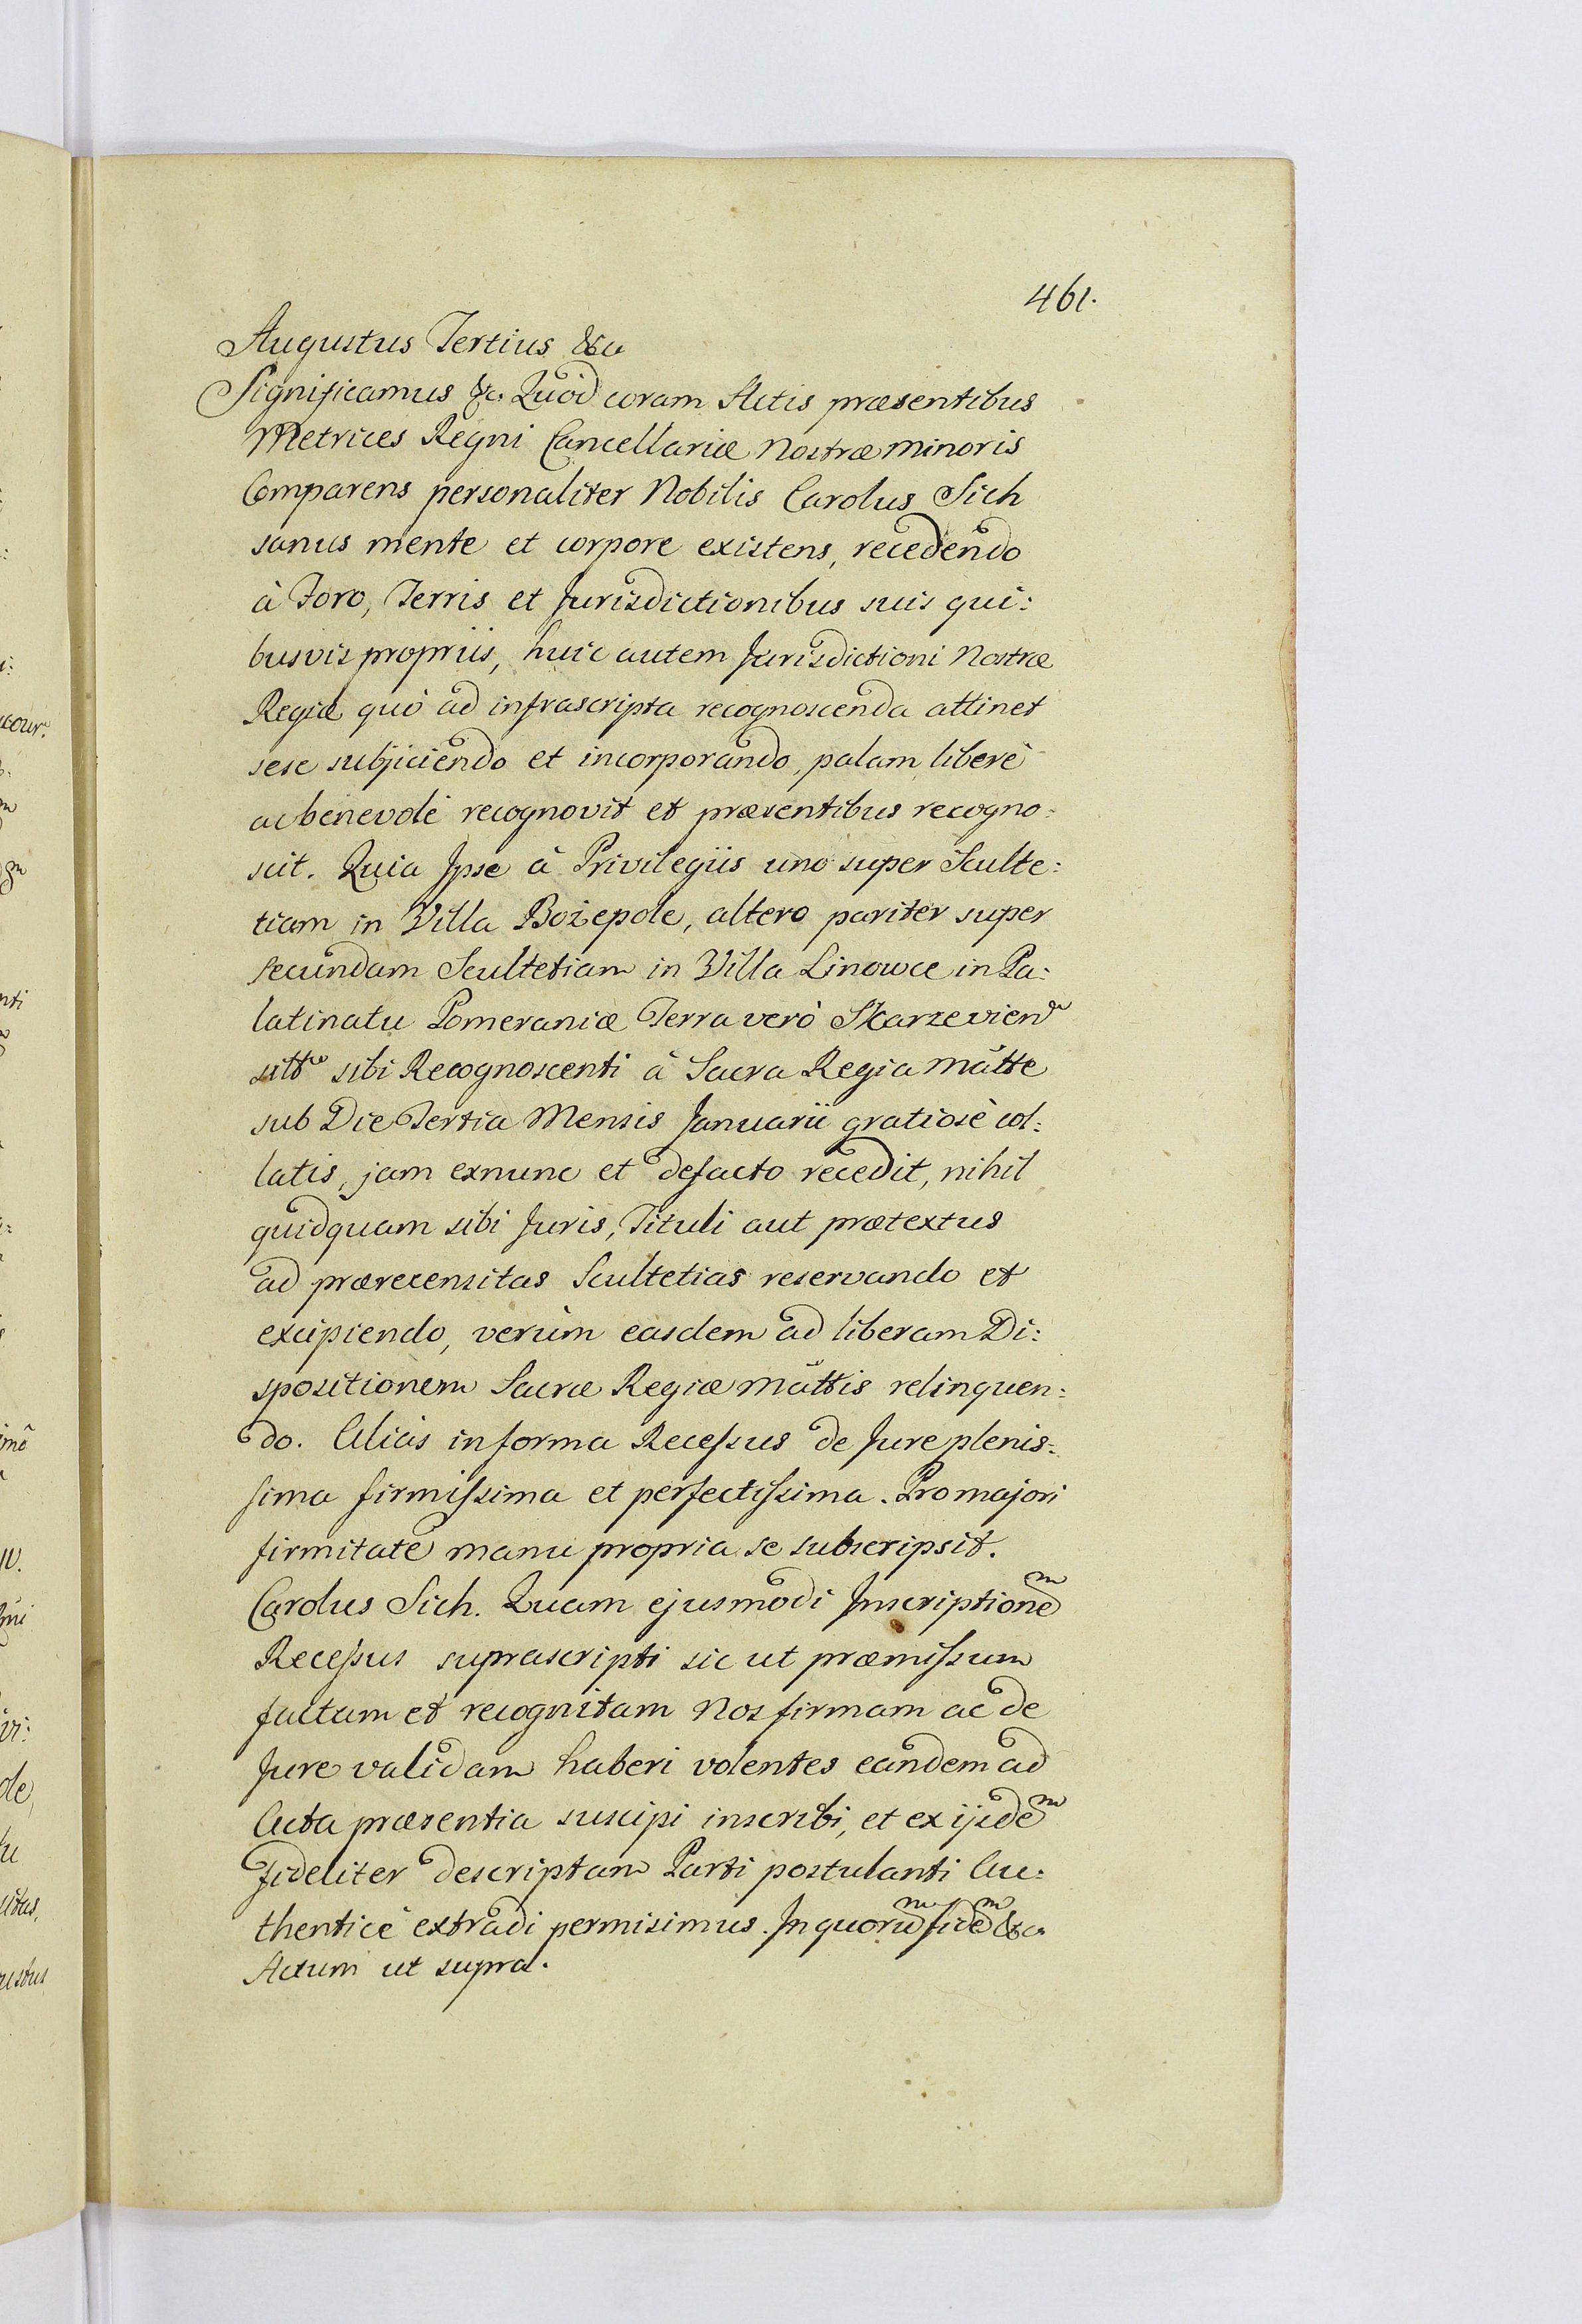 461.
Augustus Tertius &c
Significamus &c. Quòd coram Actis præsentibus
Metrices Regni Cancellariæ Nostræ minoris
Comparens personaliter Nobilis Carolus Sich
sanus mente et corpore existens, recedendo
à Foro, Terris et Jurisdictionibus suis qui:
busvis propriis, huic autem Jurisdictioni Nostræ
Regiæ quò ad infrascripta recognoscenda attinet
sese subjiciendo et incorporando, palam liberè
ac benevolè recognovit et præsentibus recogno:
scit. Quia Ipse à Privilegiis uno super Sculte:
tiam in Villa Bożepole, altero pariter super
secundam Scultetiam in Villa Linowce in Pa:
latinatu Pomeraniæ Terra verò Skarzevien
sitt sibi Recognoscenti à Sacra Regia Mātte
sub Die Tertia Mensis Januarii gratiosè col:
latis, jam exnunc et defacto recedit, nihil
quidquam sibi Juris, Tituli aut prætextus
ad prærecensitas Scultetias reservando et
excipiendo, verùm easdem ad liberam Di:
spositionem Sacræ Regiæ Mattis relinquen:
do. Aliàs in forma Recessus de Jure plenis:
sima firmissima et perfectissima. Pro majori
firmitate manu propria se subscripsit.
Carolus Sich. Quam ejusmodi Inscriptionem
Recessus suprascripti sic ut præmissum
factum et recognitam Nos firmam ac de
Jure validam haberi volentes eandem ad
Acta præsentia suscipi inscribi, et ex ijsdem
fideliter descriptam Parti postulanti Au:
thenticè extradi permisimus. In quorum fidem &c.
Actum ut supra.